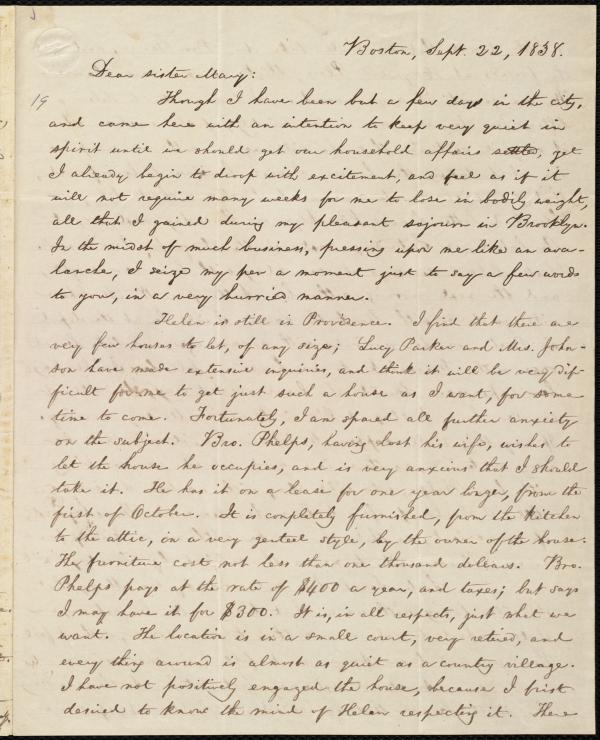 19
Boston, Sept. 22, 1838.
Dear sister Mary:
Though I have been but a few days in the city,
and came here with an intention to keep very quiet in
spirit until we should get our household affairs settled, yet
I already begin to droop with excitement, and feel as if it
will not require many weeks for me to lose in bodily weight,
all that I gained during my pleasant sojourn in Brooklyn.
In the midst of much business, pressing upon me like an ava-
lanche, I seize my pen a moment just to say a few words
to you, in a very hurried manner.
Helen is still in Providence. I find that there are
very few houses to let, of any size; Lucy Parker and Mrs. John-
son have made extensive inquiries, and think it will be very dif-
ficult for me to get just such a house as I want, for some
time to come. Fortunately, I am spared all further anxiety
on the subject. Bro. Phelps, having lost his wife, wishes to
let the house he occupies, and is very anxious that I should
take it. He has it on a lease for one year longer, from the
first of October. It is completely furnished, from the kitchen
to the attic, in a very genteel style, by the owner of the house.
The furniture cost not less than one thousand dollars. Bro.
Phelps pays at the rate of $400 a year, and taxes; but says
I may have it for $300. It is, in all respects, just what we
want. The location is in a small court, very retired, and
every thing around is almost as quiet as a country village.
I have not positively engaged the house, because I first
desired to know the mind of Helen respecting it. There